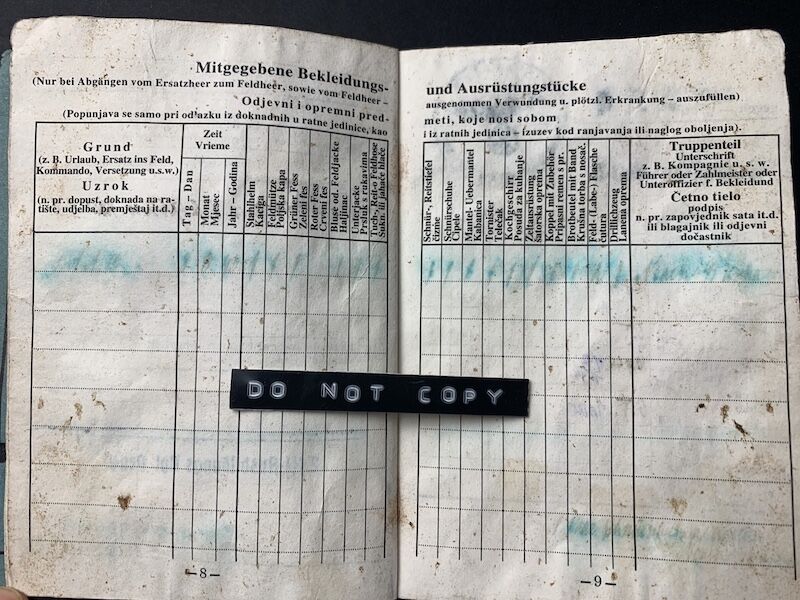 Mitgegebene Bekleidungs-
(Nur bei Abgängen vom Ersatzheer zum Feldheer, sowie vom Feldheer –
Odjevni i opremni pred-
(Popunjava se samo pri odlazku iz doknadnih u ratne jedinice, kao
Grund
(z. B. Urlaub, Ersatz ins Feld,
Kommando, Versetzung u.s.w.)
Uzrok
(n. pr. dopust, doknada na ra-
tište, udjelba, premještaj it.d.)
Zeit
Vrieme
Tag – Dan
Monat
Mjesec
Jahr – Godina
Stahlhelm
Kaciga
Feldmütze
Poljska kapa
Grüner Fess
Zeleni fes
Roter Fess
Crveni fes
Bluse od. Feldjacke
Haljinac
Unterjacke
Prsluk s rukavima
Tuch-, Reit-o Feldhose
Sukn. ili jahaće hlače
– 8 –
und Ausrüstungstücke
ausgenommen Verwundung u. plötzl. Erkrankung – auszufüllen)
meti, koje nosi sobom
i iz ratnih jedinica – izuzev kod ranjavanja ili naglog oboljenja).
Schnür-, Reitstiefel
čizme
Schnürschuhe
Cipele
Mantel- Uebermantel
Kabanica
Tornister
Telećak
Kochgeschirr
Posuda za kuhanje
Zeltausrüstung
šatorska oprema
Koppel mit Zubehör
Pripasač s pr.
Brotbeutel mit Band
Krušna torba s nosač.
Feld- (Labe-) Flasche
čutura
Drillichzeug
Lanena oprema
Truppenteil
Unterschrift
z. B. Kompagnie u. s. w.
Führer oder Zahlmeister oder
Unteroffizier f. Bekleidung
Četno tielo
podpis
n. pr. zapovjednik sata it.d.
ili blagajnik ili odjevni
dočastnik
– 9 –
DO NOT COPY